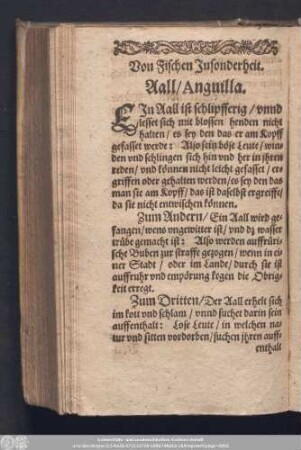 Von Fischen Insonderheit.
Aall/Anguilla.
EIn Aall ist schlipfferig/ vnnd
lesset sich mit blossen henden nicht
halten/ es sey den das er am Kopff
gefasset werde: Also sein böse Leute/ win-
den vnd schlingen sich hin vnd her in jhren
reden/ vnd können nicht leicht gefasset/ er-
griffen oder gehalten werden/ es sey den das
man sie am Kopff/ das ist daselbst ergreiffe/
da sie nicht entwischen können.
Zum Andern/ Ein Aall wird ge-
fangen/ wens vngewitter ist/ vnd dz wasser
trübe gemacht ist: Also werden auffrüri-
sche Buben zur straffe gezogen/ wenn in ei-
ner Stad/ oder im Lande/ durch sie ist
auffruhr vnd empörung kegen die Obrig-
keit erregt.
Zum Dritten/ Der Aall erhelt sich
im kott vnd schlam/ vnnd suchet darin sein
auffenthalt: Lose Leute/ in welchen na-
tur vnd sitten vordorben/ suchen jhren auff-
enthall